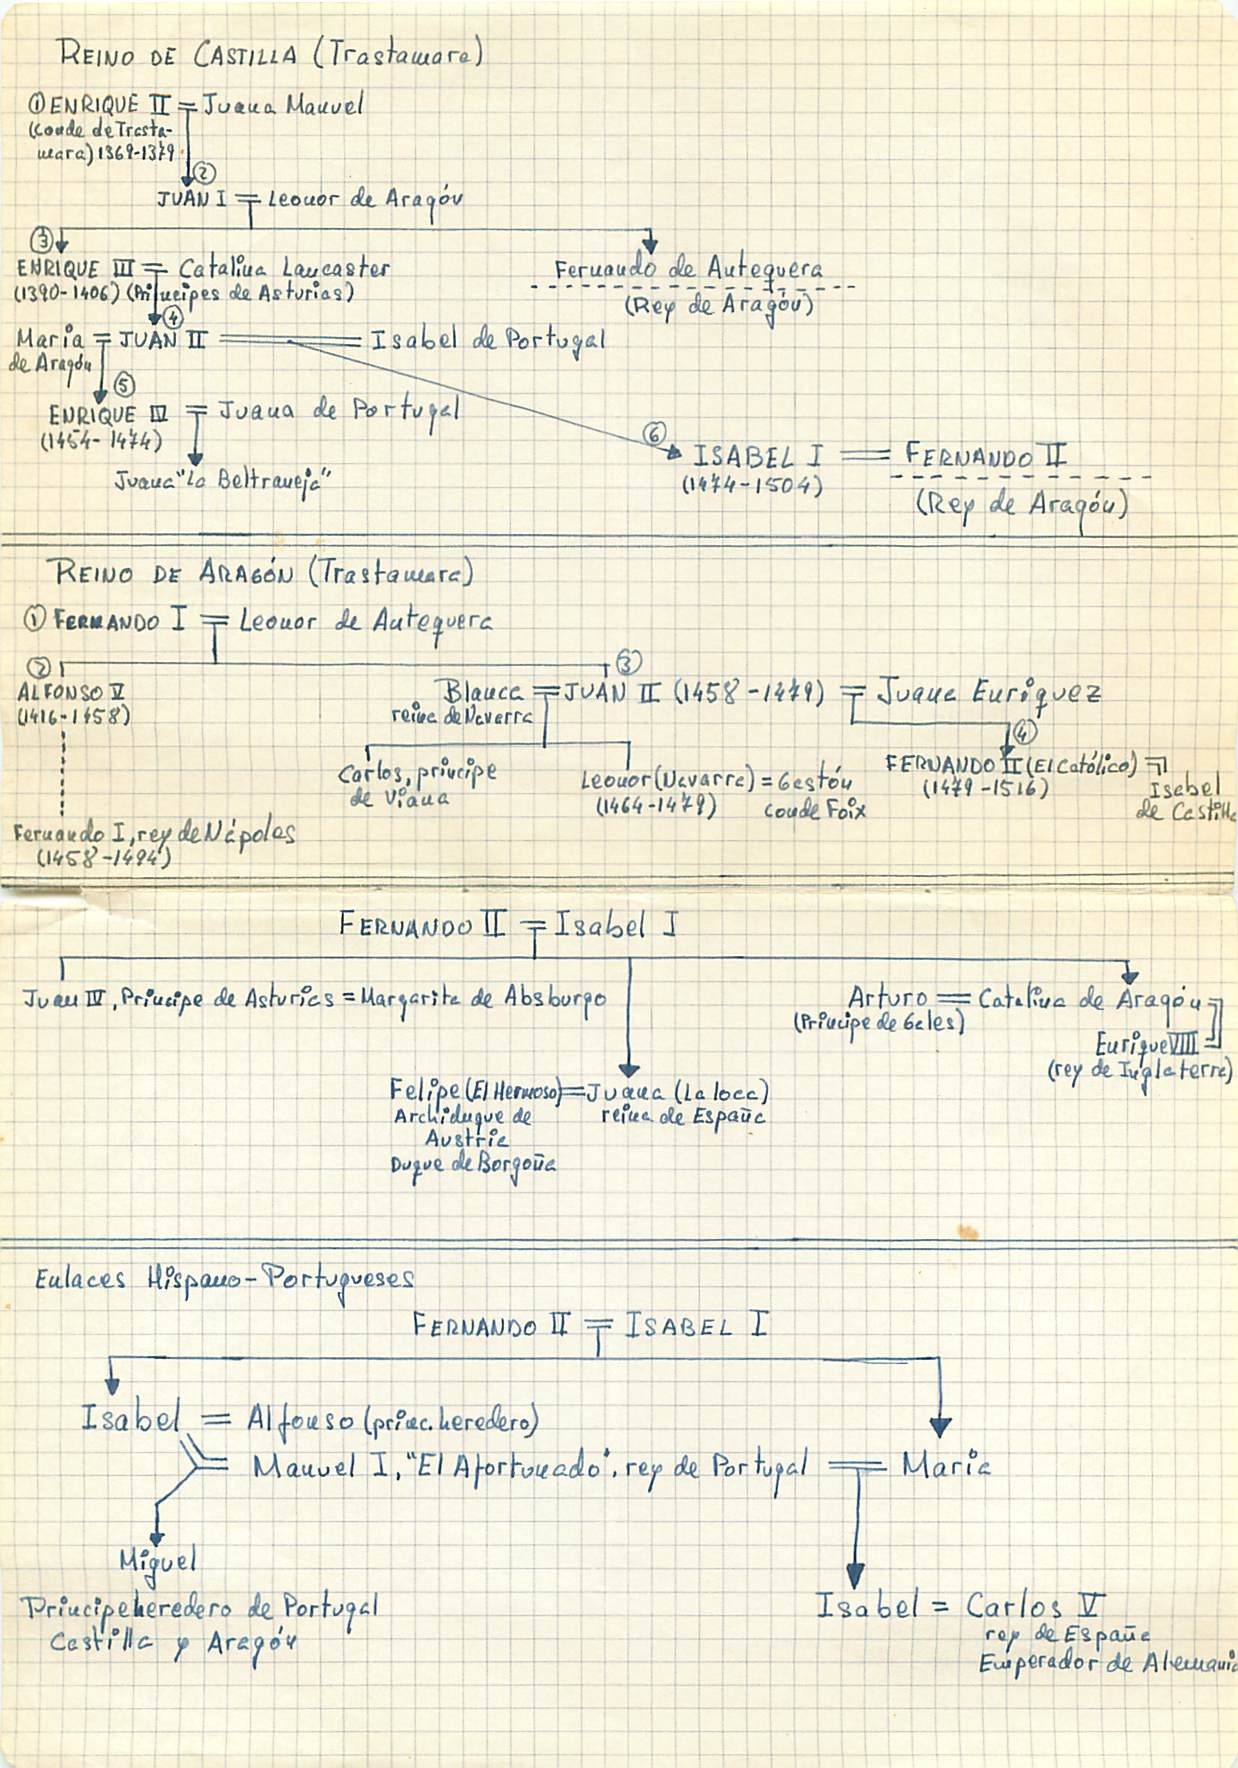 REINO DE CASTILLA (Trastamara)
① ENRIQUE II = Juana Manuel
(Conde de Trasta-
mara) 1369-1379
②
JUAN I = Leonor de Aragón
③
ENRIQUE III = Catalina Lancaster
(1390-1406) (Principes de Asturias)
Fernando de Antequera
(Rey de Aragón)
④
María = JUAN II = Isabel de Portugal
de Aragón
⑤
ENRIQUE IV = Juana de Portugal
(1454-1474)
Juana "La Beltraneja"
⑥
ISABEL I = FERNANDO II
(1474-1504)
(Rey de Aragón)
REINO DE ARAGÓN (Trastamara)
① FERNANDO I = Leonor de Antequera
②
ALFONSO V
(1416-1458)
③
Blanca = JUAN II (1458-1479) = Juana Enríquez
reina de Navarra
④
Carlos, príncipe
de Viana
Leonor (Navarra) = Gastón
(1464-1479) conde Foix
FERNANDO II (El Católico) =
(1479-1516)
Isabel
de Castilla
Fernando I, rey de Nápoles
(1458-1494)
FERNANDO II = Isabel I
Juan IV, Príncipe de Asturias = Margarita de Absburgo
Arturo = Catalina de Aragón
(Príncipe de Gales)
Enrique VIII
(rey de Inglaterra)
Felipe (El Hermoso) = Juana (La loca)
Archiduque de
Austria
Duque de Borgoña
reina de España
Enlaces Hispano-Portugueses
FERNANDO II = ISABEL I
Isabel = Alfonso (princ. heredero)
= Manuel I, "El Afortunado", rey de Portugal = María
Miguel
Principe heredero de Portugal
Castilla y Aragón
Isabel = Carlos V
rey de España
Emperador de Alemania